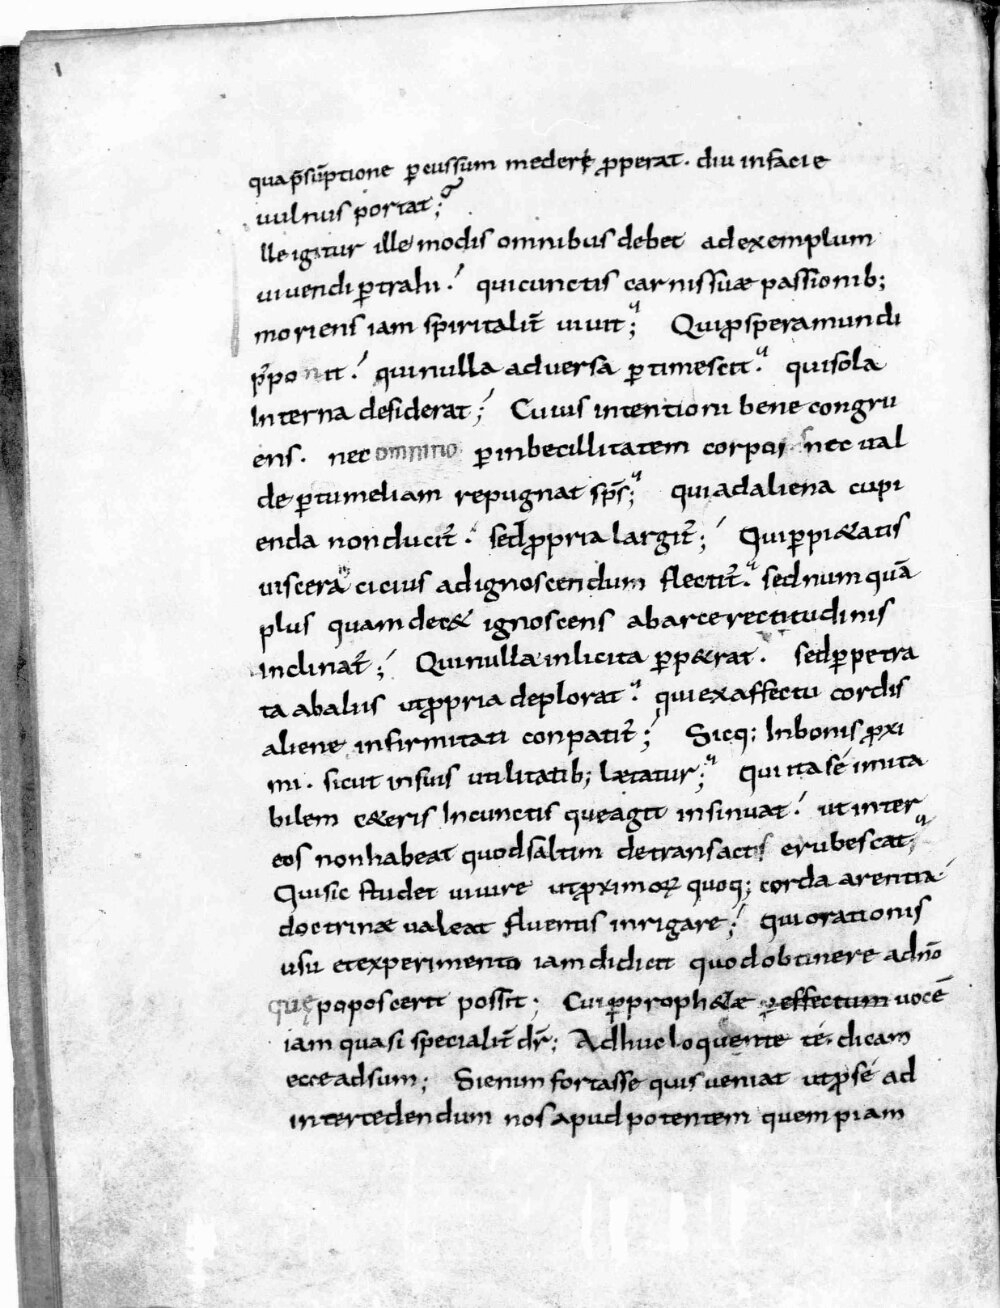 qua p̄sūptione ꝑcussum medere ꝓperat. diu in facie
uulnus portat;
lle igitur ille modis omnibus debet ad exemplum
uiuendi ꝑtrahi. qui cunctis carnis suæ passionib;
moriens iam spiritalit̄ uiuit; Qui ꝓspera mundi
p̄ponit. qui nulla aduersa ꝑtimescit. qui sola
Interna desiderat; Cuius intentioni bene congru
ens. nec omnino ꝑ inbecillitatem corpus nec ual
de ꝑtumeliam repugnat sp̄s; qui ad aliena cupi
enda non ducit̄. sed ꝓpria largit̄; Qui ꝑ pi&atis
uiscera cicius ad ignoscendum flectit̄. sed numquā
plus quam dec& ignoscens ab arce rectitudinis
Inclinat̄; Qui nulla inlicita ꝑp&rat. sed ꝑpetra
ta ab aliis ut ꝓpria deplorat. qui ex affectu cordis
aliene infirmitati conpatit̄; Sicq; In bonis ꝓxi
mi. sicut in suis utilitatib; lætatur; Qui ita sé imita
bilem c&eris In cunctis que agit insinuat. ut inter
eos non habeat quod saltim de transactis erubescat;
Qui sic studet uiuere ut ꝓximoꝝ quoq; corda arentia
doctrinæ ualeat fluentis inrigare; Qui orationis
usu et experimento iam didicit quod obtinere a dn̄o
quę poposcerit possit; Cui ꝑ proph&æ ꝑ effectum uocē
iam quasi specialit̄ dr̄; Adhuc loquente té. dicam
ecce adsum; Si enim fortasse quis ueniat ut ꝓ sé ad
intercedendum nos apud potentem quempiam